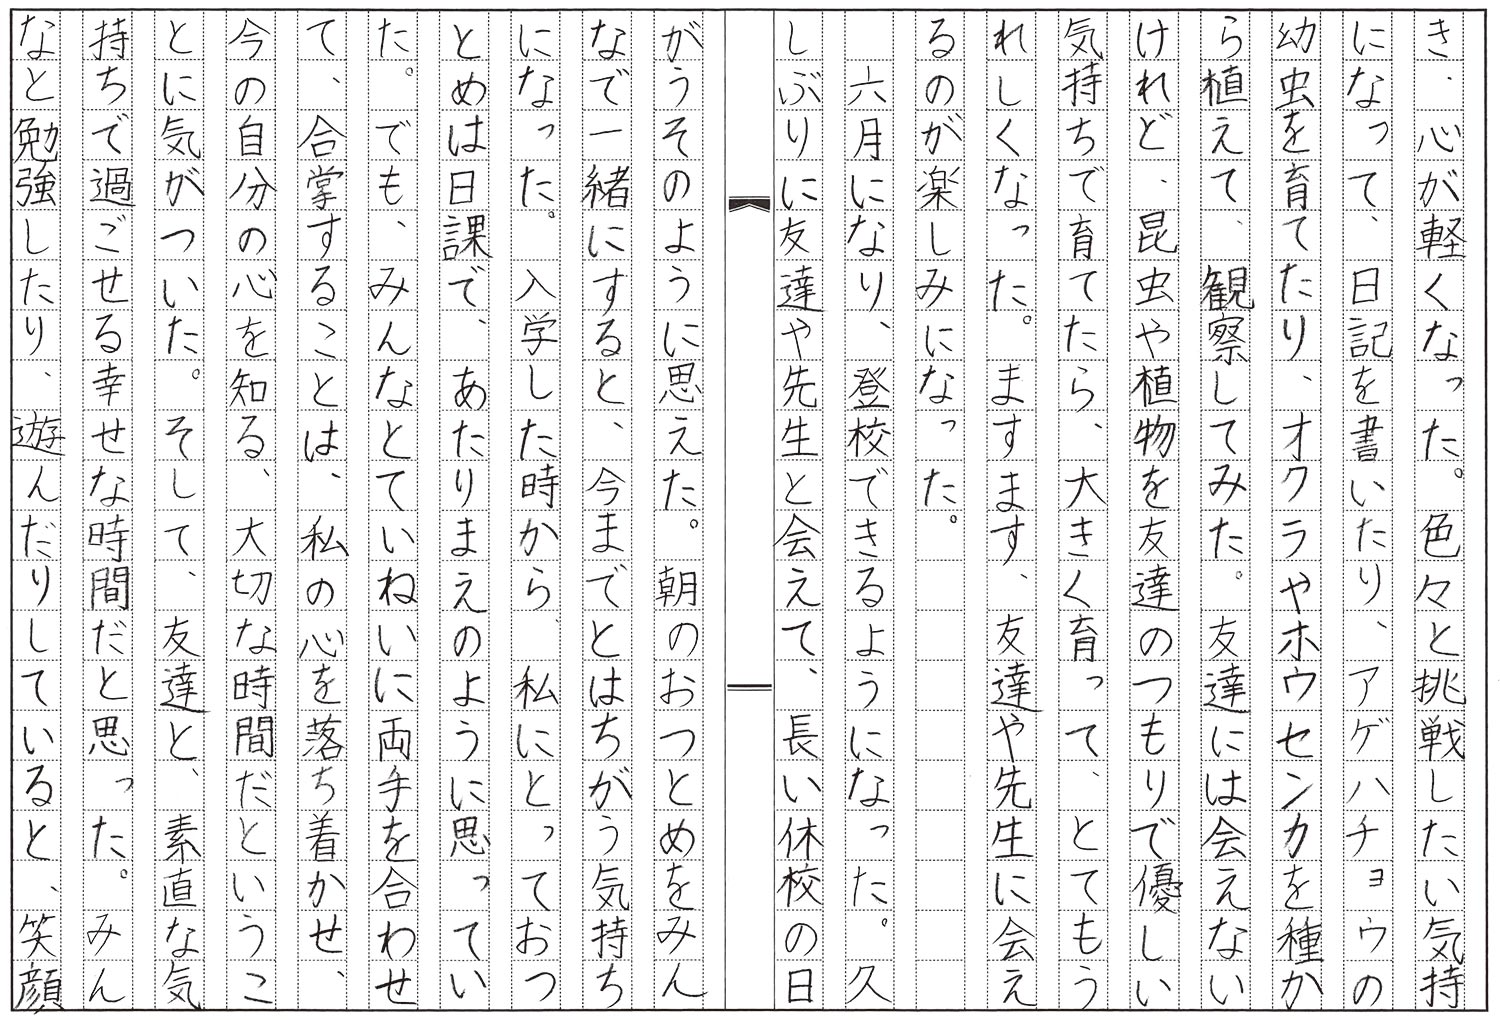 き、心が軽くなった。色々と挑戦したい気持
になって、日記を書いたり、アゲハチョウの
幼虫を育てたり、オクラやホウセンカを種か
ら植えて、観察してみた。友達には会えない
けれど、昆虫や植物を友達のつもりで優しい
気持ちで育てたら、大きく育って、とてもう
れしくなった。ますます、友達や先生に会え
るのが楽しみになった。
　六月になり、登校できるようになった。久
しぶりに友達や先生と会えて、長い休校の日
がうそのように思えた。朝のおつとめをみん
なで一緒にすると、今まではとはちがう気持ち
になった。入学した時から、私にとっておつ
とめは日課で、あたりまえのように思ってい
た。でも、みんなとていねいに両手を合わせ
て、合掌することは、私の心を落ち着かせ、
今の自分の心を知る、大切な時間だというこ
とに気がついた。そして、友達と、素直な気
持ちで過ごせる幸せな時間だと思った。みん
なと勉強したり、遊んだりしていると、笑顔